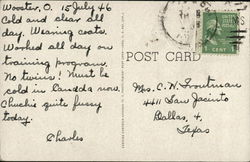 Wooster, O. 15 July 46
Cold and clear all
day. Wearing coats.
Worked all day on
training program.
No twins! Must be
cold in Canada now.
Chuckie quite fussy
today.
Charles
POST CARD
Mrs. C. H. Troutman
4411 San Jacinto
Dallas, 4,
Texas